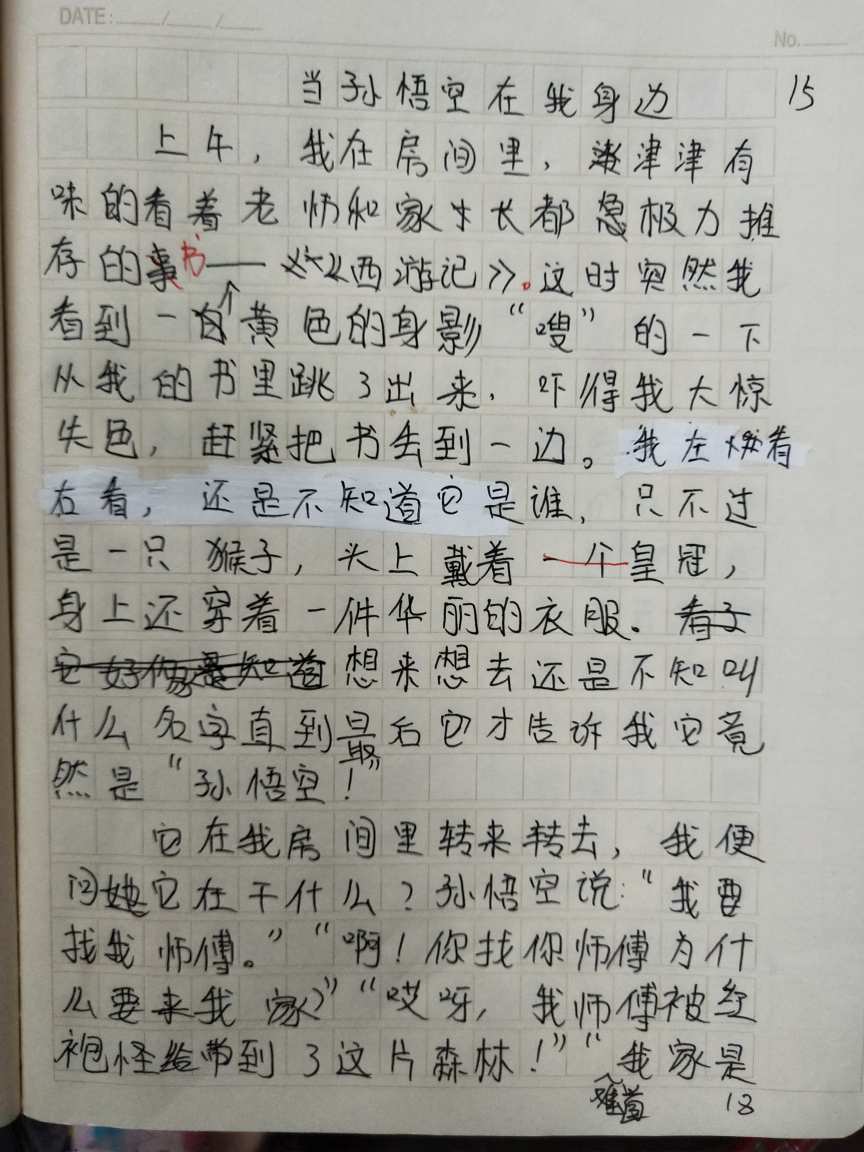 DATE: / /
No.
当孙悟空在我身边 15
上午，我在房间里，津津有
味的看着老师和家长都极力推
存的书——《西游记》。这时突然我
看到一个黄色的身影“嗖”的一下
从我的书里跳了出来，吓得我大惊
失色，赶紧把书丢到一边。我左看
右看，还是不知道它是谁，只不过
是一只猴子，头上戴着一个皇冠，
身上还穿着一件华丽的衣服。
想来想去还是不知叫
什么名字直到最后它才告诉我它竟
然是“孙悟空！”
它在我房间里转来转去，我便
问它在干什么？孙悟空说：“我要
找我师傅。”“啊！你找你师傅为什
么要来我家？”“哎呀，我师傅被红
袍怪给带到了这片森林！”“难道我家是
18